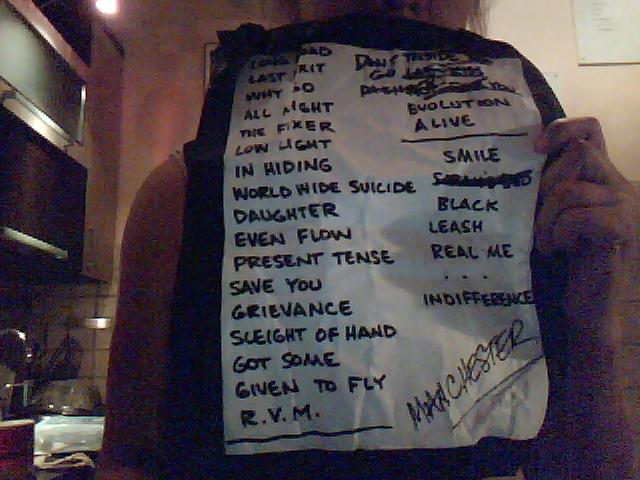 LONG ROAD
LAST EXIT
WHY GO
ALL NIGHT
THE FIXER
LOW LIGHT
IN HIDING
WORLD WIDE SUICIDE
DAUGHTER
EVEN FLOW
PRESENT TENSE
SAVE YOU
GRIEVANCE
SLEIGHT OF HAND
GOT SOME
GIVEN TO FLY
R.V.M.
GO
EVOLUTION
ALIVE
SMILE
BLACK
LEASH
REAL ME
. . .
INDIFFERENCE
MANCHESTER